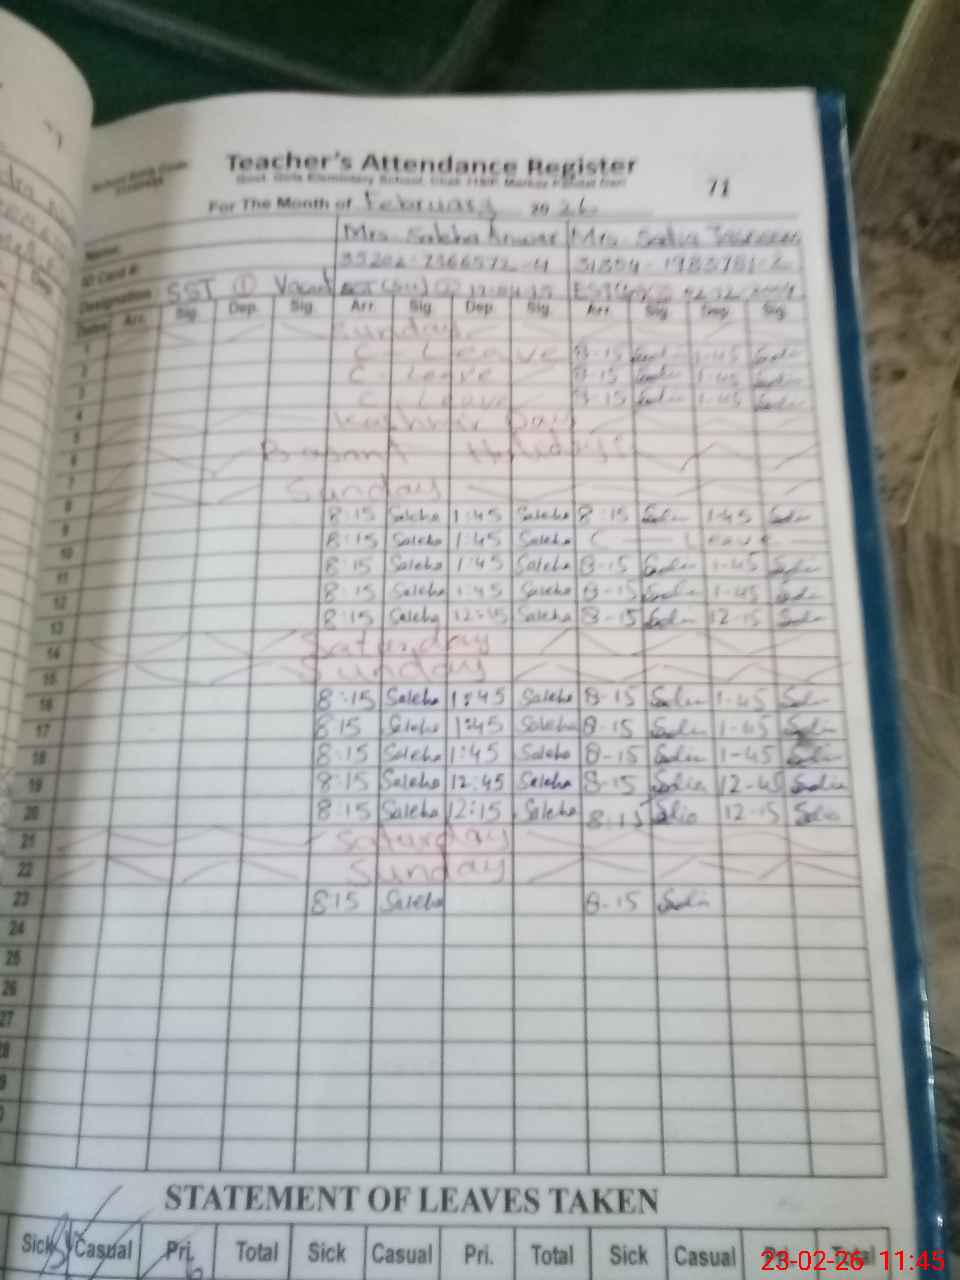 Teacher's Attendance Register
71
For The Month of February 2026
Name Mrs. Saleha Anwar Mrs. Sadia
ID Card #
Designation SST ① Vacant
Dates Arr. Sig. Dep. Sig. Arr. Sig. Dep. Sig. Arr. Sig. Dep. Sig.
1 Sunday
2 C - Leave 8-15 Sadia 1-45 Sadia
3 C - Leave 8-15 Sadia 1-45 Sadia
4 C - Leave 8-15 Sadia 1-45 Sadia
5 Kashmir Day
6 Basant Holidays
7
8 Sunday
9 8:15 Saleha 1:45 Saleha 8-15 Sadia 1-45 Sadia
10 8:15 Saleha 1:45 Saleha C - Leave
11 8:15 Saleha 1:45 Saleha 8-15 Sadia 1-45 Sadia
12 8:15 Saleha 1:45 Saleha 8-15 Sadia 1-45 Sadia
13 8:15 Saleha 12:15 Saleha 8-15 Sadia 12-15 Sadia
14 Saturday
15 Sunday
16 8:15 Saleha 1:45 Saleha 8-15 Sadia 1-45 Sadia
17 8:15 Saleha 1:45 Saleha 8-15 Sadia 1-45 Sadia
18 8:15 Saleha 1:45 Saleha 8-15 Sadia 1-45 Sadia
19 8:15 Saleha 12:45 Saleha 8-15 Sadia 12-45 Sadia
20 8:15 Saleha 12:15 Saleha 8-15 Sadia 12-15 Sadia
21 Saturday
22 Sunday
23 8:15 Saleha 8-15 Sadia
24
25
26
27
STATEMENT OF LEAVES TAKEN
Sick Casual Pri. Total Sick Casual Pri. Total Sick Casual Total
23-02-26 11:45